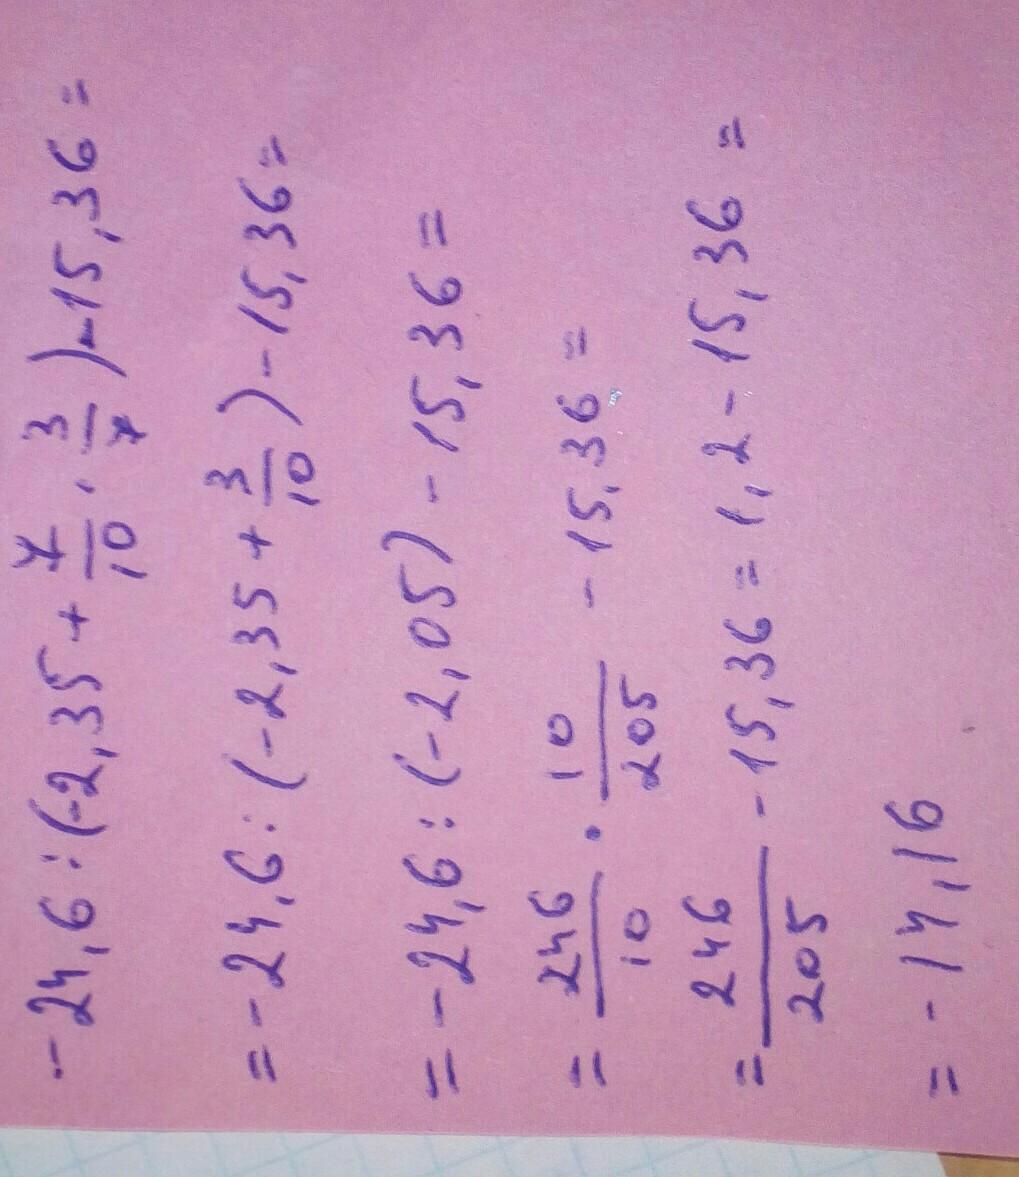 -24,6:(-2,35+7/10·3/7)-15,36=
=-24,6:(-2,35+3/10)-15,36=
=-24,6:(-2,05)-15,36=
=246/10·10/205-15,36=
=246/205-15,36=1,2-15,36=
=-14,16